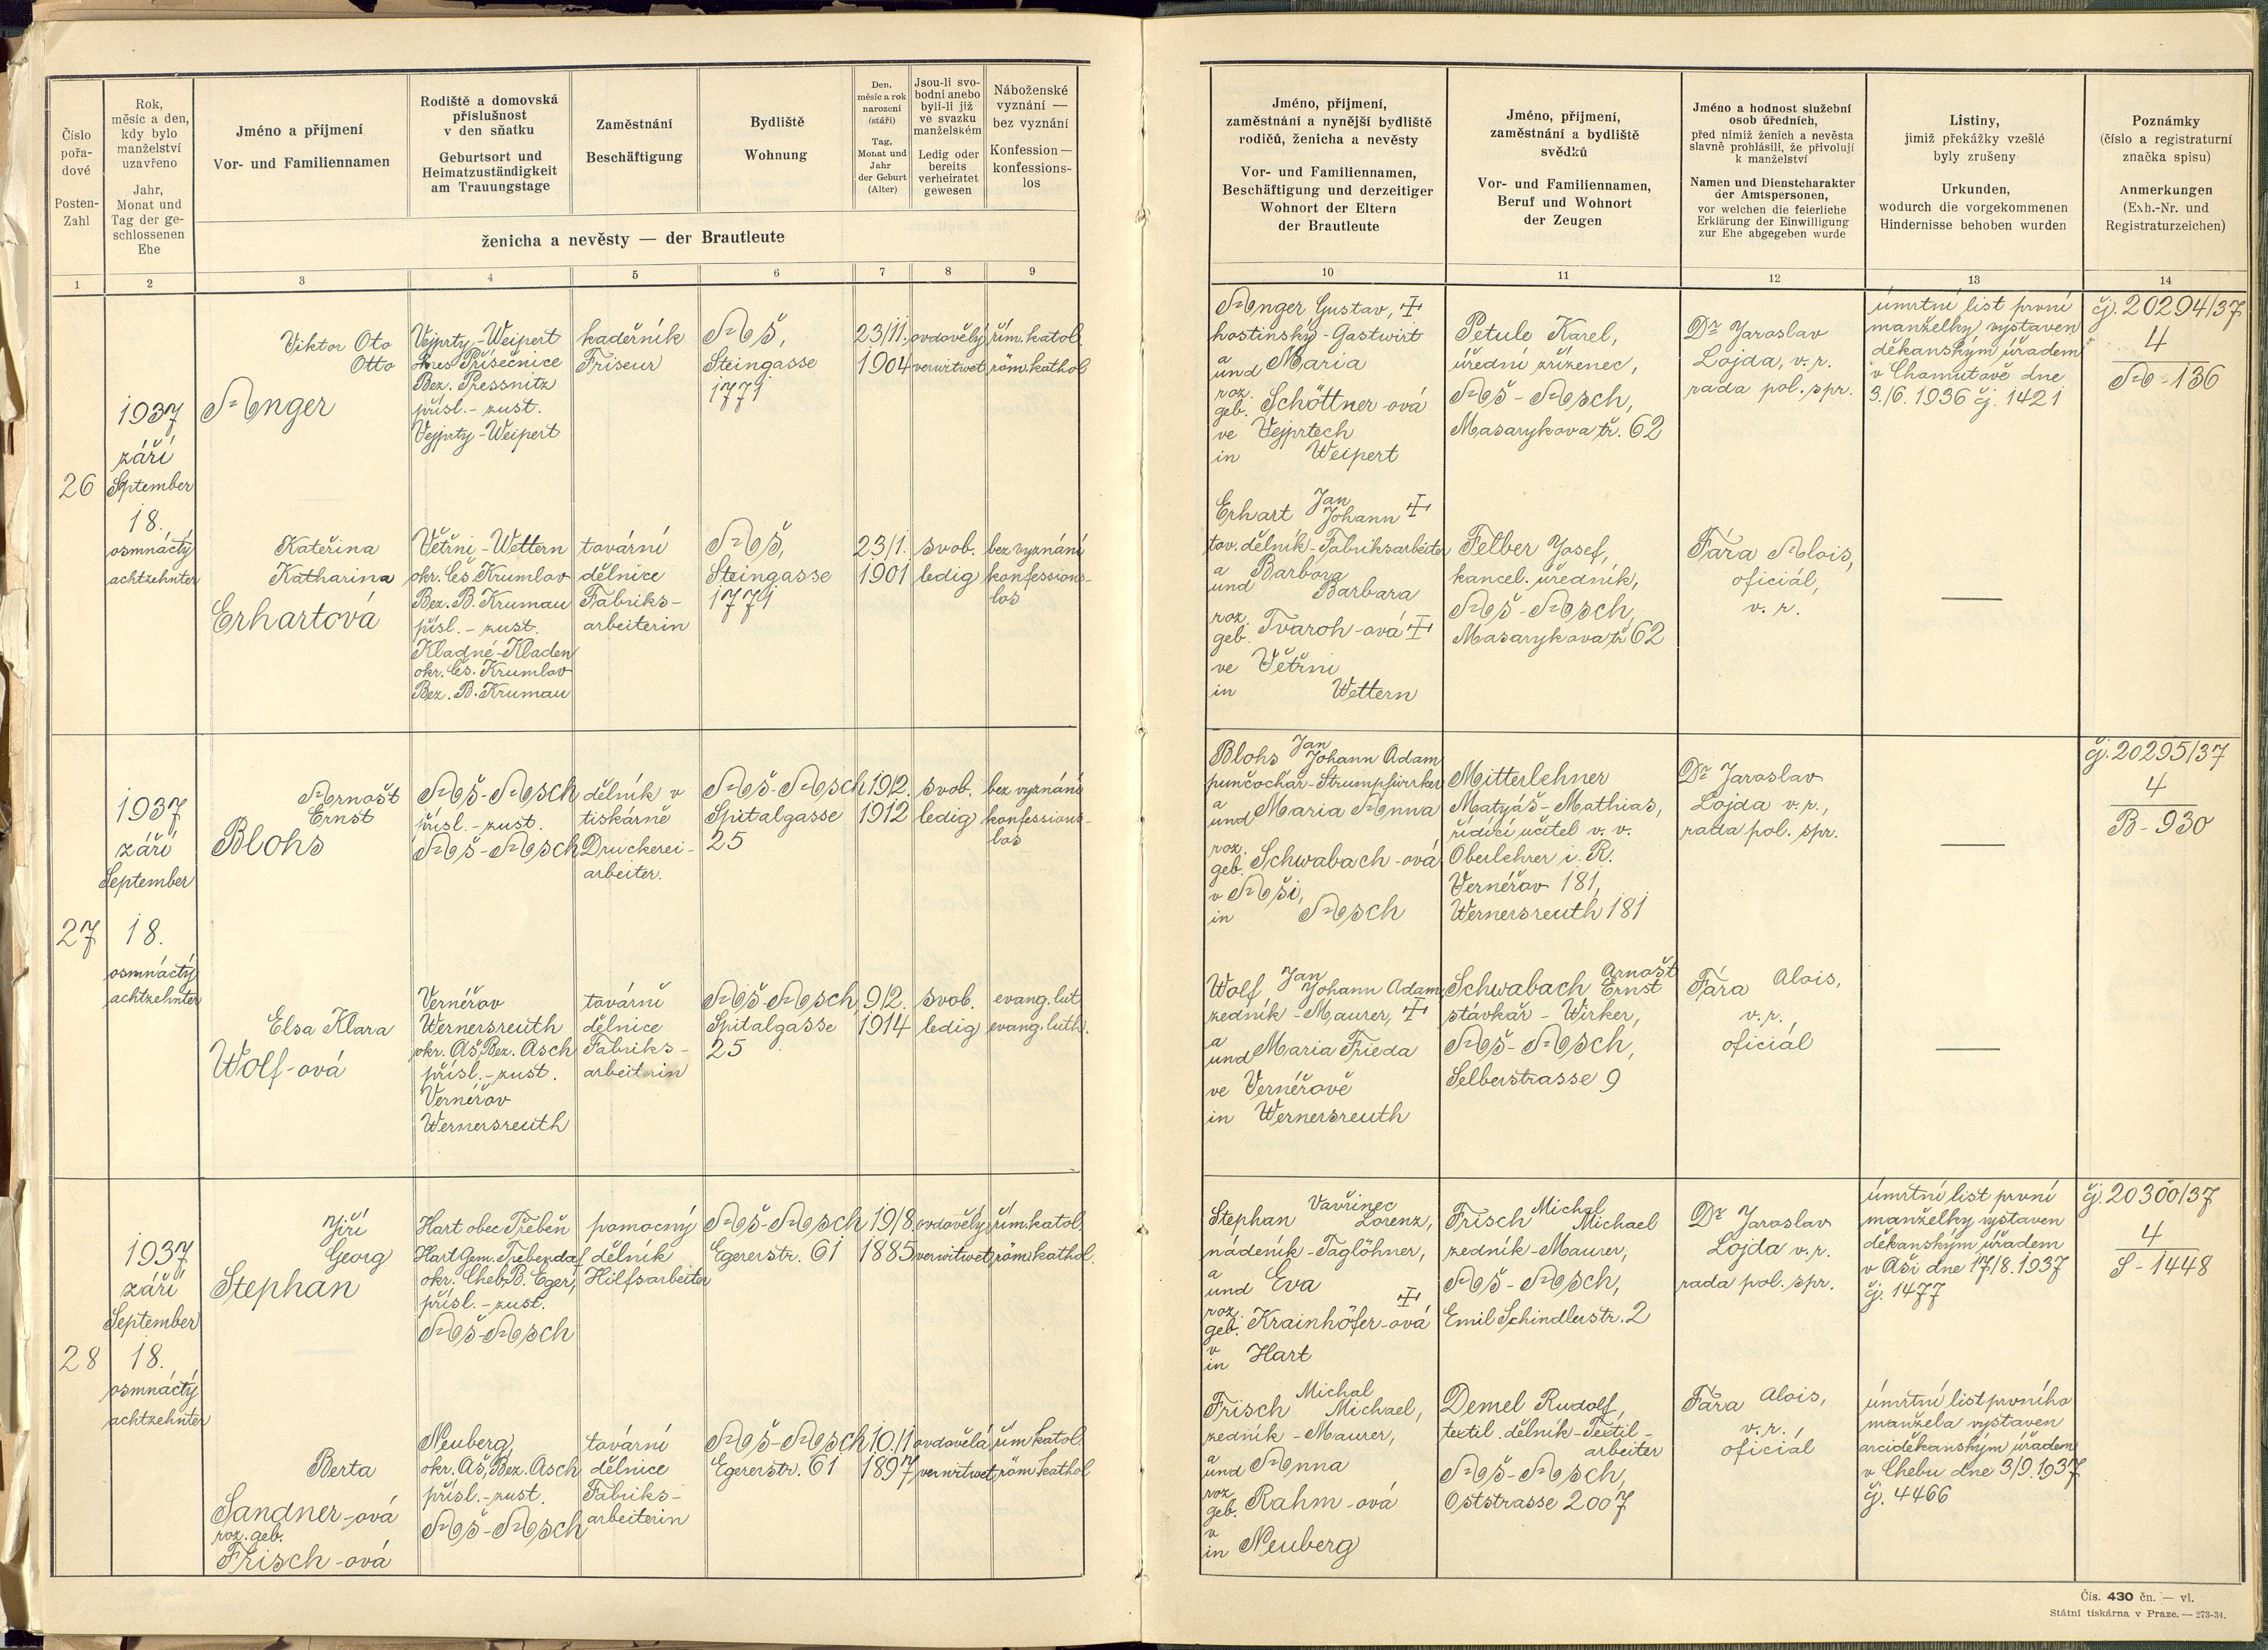 Číslo
pořa-
dové
Posten-
Zahl
Rok,
měsíc a den,
kdy bylo
manželství
uzavřeno
Jahr,
Monat und
Tag der ge-
schlossenen
Ehe
Jméno a příjmení
Vor- und Familiennamen
Rodiště a domovská
příslušnost
v den sňatku
Geburtsort und
Heimatzuständigkeit
am Trauungstage
Zaměstnání
Beschäftigung
Bydliště
Wohnung
Den,
měsíc a rok
narození
(stáří)
Tag,
Monat und
Jahr
der Geburt
(Alter)
Jsou-li svo-
bodni anebo
byli-li již
ve svazku
manželském
Ledig oder
bereits
verheiratet
gewesen
Náboženské
vyznání —
bez vyznání
Konfession —
konfessions-
los
ženicha a nevěsty — der Brautleute
Jméno, příjmení,
zaměstnání a nynější bydliště
rodičů, ženicha a nevěsty
Vor- und Familiennamen,
Beschäftigung und derzeitiger
Wohnort der Eltern
der Brautleute
Jméno, příjmení,
zaměstnání a bydliště
svědků
Vor- und Familiennamen,
Beruf und Wohnort
der Zeugen
Jméno a hodnost služební
osob úředních,
před nimiž ženich a nevěsta
slavně prohlásili, že přivolují
k manželství
Namen und Dienstcharakter
der Amtspersonen,
vor welchen die feierliche
Erklärung der Einwilligung
zur Ehe abgegeben wurde
Listiny,
jimiž překážky vzešlé
byly zrušeny
Urkunden,
wodurch die vorgekommenen
Hindernisse behoben wurden
Poznámky
(číslo a registraturní
značka spisu)
Anmerkungen
(Exh.-Nr. und
Registraturzeichen)
1 2 3 4 5 6 7 8 9 10 11 12 13 14
26
1937
září
September
18.
osmnáctý
achtzehnter
Viktor Oto
Otto
Anger
Vejprty-Weipert
okres Přísečnice
Bez. Pressnitz
přísl. - zust.
Vejprty-Weipert
kadeřník
Friseur
Aš,
Steingasse
1771
23/11.
1904
ovdovělý
verwitwet
řím. katol.
röm. kathol
Anger Gustav, ☩
hostinský - Gastwirt
a
und Maria
roz.
geb. Schöttner-ová
ve Vejprtech
in Weipert
Petule Karel,
úřední zřízenec,
Aš - Asch,
Masarykova tř. 62
Dr Jaroslav
Lojda, v. r.
rada pol. spr.
úmrtní list první
manželky vystaven
děkanským úřadem
v Chomutově dne
3./6. 1936 čj. 1421
čj. 20294/37
4
A - 136
Kateřina
Katharina
Erhartová
Větřni-Wettern
okr. Čes. Krumlov
Bez. B. Krumau
přísl. - zust.
Kladné-Kladen
okr. Čes. Krumlov
Bez. B. Krumau
tovární
dělnice
Fabriks-
arbeiterin
Aš,
Steingasse
1771
23/1.
1901
svob.
ledig
bez vyznání
konfessions-
los
Erhart Jan
Johann ☩
tov. dělník - Fabriksarbeiter
a Barbora
und Barbara
roz.
geb. Tvaroh-ová ☩
ve Větřni
in Wettern
Felber Josef,
kancel. úředník,
Aš - Asch,
Masarykova tř 62
Fára Alois,
oficiál,
v. r.
—
27
1937
září
September
18.
osmnáctý
achtzehnter
Arnošt
Ernst
Blohs
Aš - Asch
přísl. - zust.
Aš - Asch
dělník v
tiskárně
Druckerei-
arbeiter.
Aš - Asch
Spitalgasse
25
19/2.
1912
svob.
ledig
bez vyznání
konfessions-
los
Blohs Jan
Johann Adam
punčochář - Strumpfwirker
a
und Maria Anna
roz.
geb. Schwabach-ová
v Aši,
in Asch
Mitterlehner
Matyáš - Mathias,
řídící učitel v. v.
Oberlehrer i. R.
Vernéřov 181,
Wernersreuth 181
Dr Jaroslav
Lojda v. r.,
rada pol. spr.
—
čj. 20295/37
4
B - 930
Elsa Klara
Wolf-ová
Vernéřov
Wernersreuth
okr. Aš, Bez. Asch
přísl. - zust.
Vernéřov
Wernersreuth
tovární
dělnice
Fabriks-
arbeiterin
Aš - Asch,
Spitalgasse
25
9/2.
1914
svob.
ledig
evang. lut
evang. luth.
Wolf Jan
Johann Adam,
zedník - Maurer, ☩
a
und Maria Frieda
ve Vernéřově
in Wernersreuth
Schwabach Arnošt
Ernst
stávkař - Wirker,
Aš - Asch,
Selberstrasse 9
Fára Alois,
v. r.,
oficiál
—
28
1937
září
September
18.
osmnáctý
achtzehnter
Jiří
Georg
Stephan
Hart obec Třebeň
Hart Gem. Trebendorf
okr. Cheb, B. Eger,
přísl. - zust.
Aš - Asch
pomocný
dělník
Hilfsarbeiter
Aš - Asch
Egererstr. 61
19/8.
1885
ovdovělý
verwitwet
řím. katol.
röm. kathol.
Stephan Vavřinec
Lorenz,
nádeník - Taglöhner,
a
und Eva
roz. ☩
geb. Krainhöfer-ová
v
in Hart
Frisch Michal
Michael
zedník - Maurer,
Aš - Asch,
Emil Schindlerstr. 2
Dr Jaroslav
Lojda v. r.
rada pol. spr.
úmrtní list první
manželky vystaven
děkanským úřadem
v Aši dne 17/8. 1937
čj. 1477
čj. 20300/37
4
S - 1448
Berta
Sandner-ová
roz. geb.
Frisch-ová
Neuberg,
okr. Aš, Bez. Asch
přísl. - zust.
Aš - Asch
tovární
dělnice
Fabriks-
arbeiterin
Aš - Asch
Egererstr. 61
10./1
1897
ovdovělá
verwitwet
řím katol.
röm kathol
Frisch Michal
Michael,
zedník - Maurer,
a
und Anna
roz
geb. Rahm-ová
v
in Neuberg
Demel Rudolf,
textil. dělník - Textil-
arbeiter
Aš - Asch,
Oststrasse 2007
Fára Alois,
v. r.,
oficiál
úmrtní list prvního
manžela vystaven
arciděkanským úřadem
v Chebu dne 3/9. 1937
čj. 4466
Čís. 430 čn. — vl.
Státní tiskárna v Praze. — 273-34.